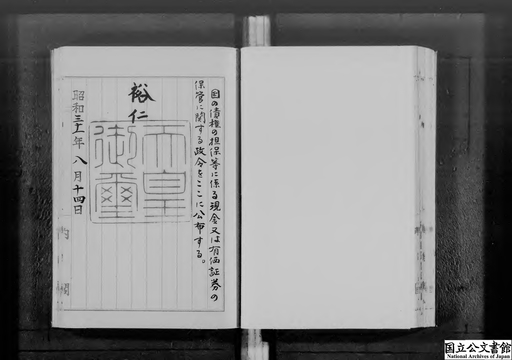 国の債権の担保等に係る現金又は有価証券の
保管に関する政令をここに公布する。
裕仁
天皇
御璽
昭和三十一年八月十四日
国立公文書館
National Archives of Japan